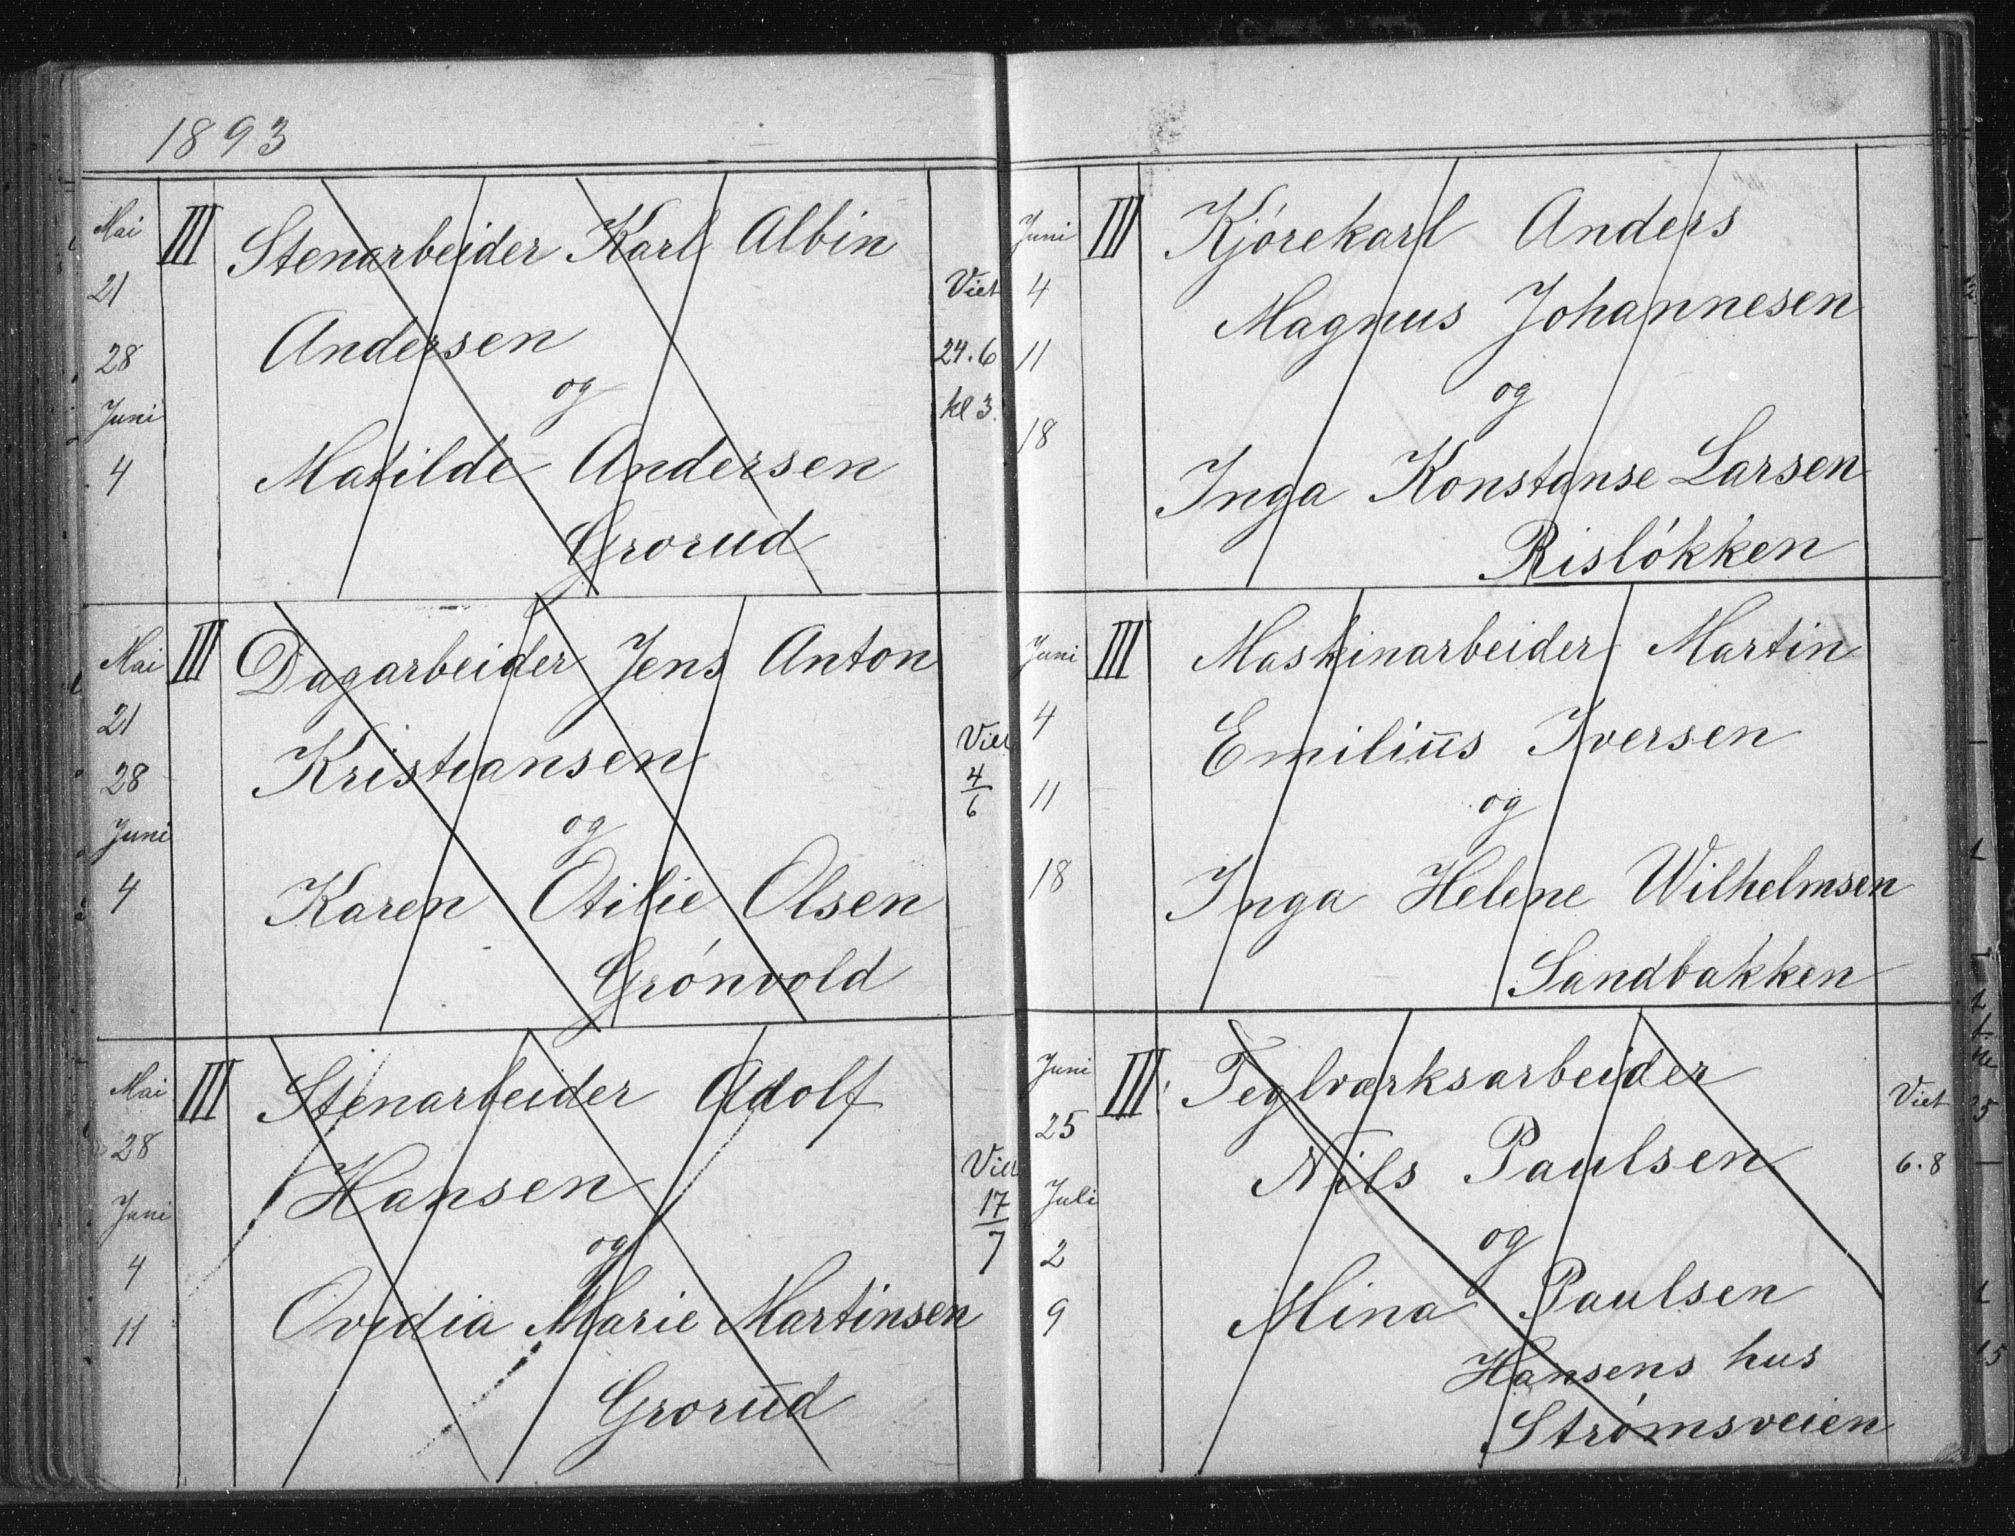 1893
Mai 21 28 Juni 4
III Stenarbeider Karl Albin
Andersen
og
Matilde Andersen
Grorud
Viet
24.6
kl 3.
Mai 21 28 Juni 4
III Dagarbeider Jens Anton
Kristiansen
og
Karen Otilie Olsen
Grónvold
Viet
4/6
Mai 28 Juni 4 11
III Stenarbeider Adolf
Hansen
og
Ovidia Marie Martinsen
Grorud
Viet
17/7
Juni 4 11 18
III Kjórekarl Anders
Magnus Johannesen
og
Inga Konstanse Larsen
Rislókken
Juni 4 11 18
III Maskinarbeider Martin
Emilius Iversen
og
Inga Helene Wilhelmsen
Sandbakken
Juni 25 Juli 2 9
III Teglværksarbeider
Nils Paulsen
og
Mina Paulsen
Hansens hus
Strømsveien
Viet
6.8